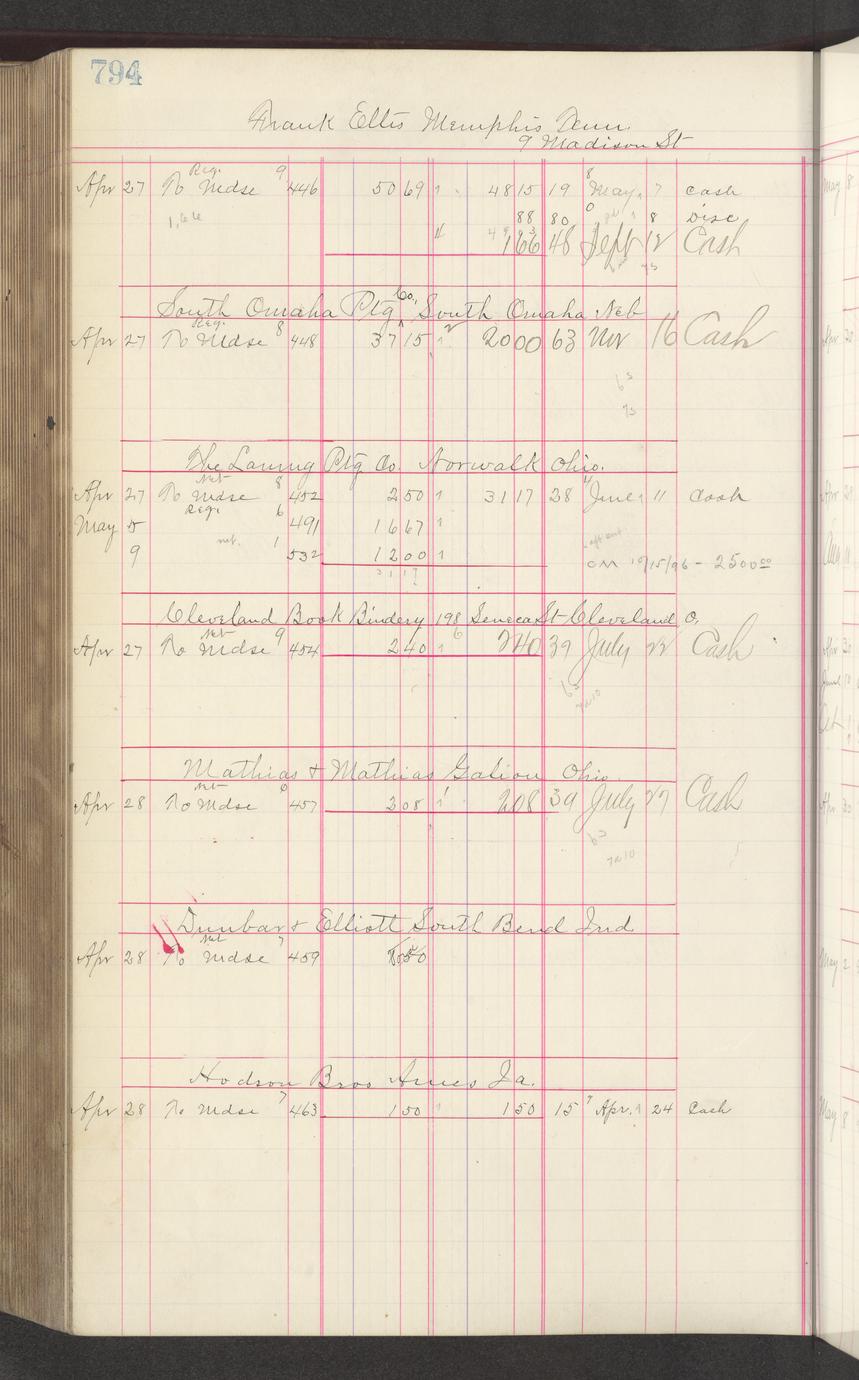 794
Frank Ellis Memphis Tenn.
9 Madison St
Reg. 9
Apr 27 To Mdse 446 50 69 1 48 15 19 May 7 cash
1,66 88 80 8 Disc
1 66 48 Sept 12 Cash
South Omaha Ptg Co, South Omaha Neb
Reg. 8
Apr 27 To Mdse 448 37 15 1 20 00 63 Nov 16 Cash
6 s
7s
The Laning Ptg Co. Norwalk Ohio.
Net 8
Apr 27 To Mdse 452 2 50 1 31 17 28 June 11 Cash
Reg. 6
May 5 491 16 67 1
net. 1
9 532 12 00 1
31 17 On 10/15/96 - 2500 00
Cleveland Book Bindery 198 Seneca St Cleveland O.
Net 9
Apr 27 To Mdse 454 2 40 1 2 40 39 July 22 Cash
6s
7210
Mathias & Mathias Galion Ohio.
Net 6
Apr 28 To Mdse 457 2 08 1 2 08 39 July 27 Cash
6s
7210
Dunbar & Elliott South Bend Ind
Net 7
Apr 28 To Mdse 459
Hodson Bros Ames Ia.
7
Apr 28 To Mdse 463 1 50 1 1 50 15 Apr. 24 Cash